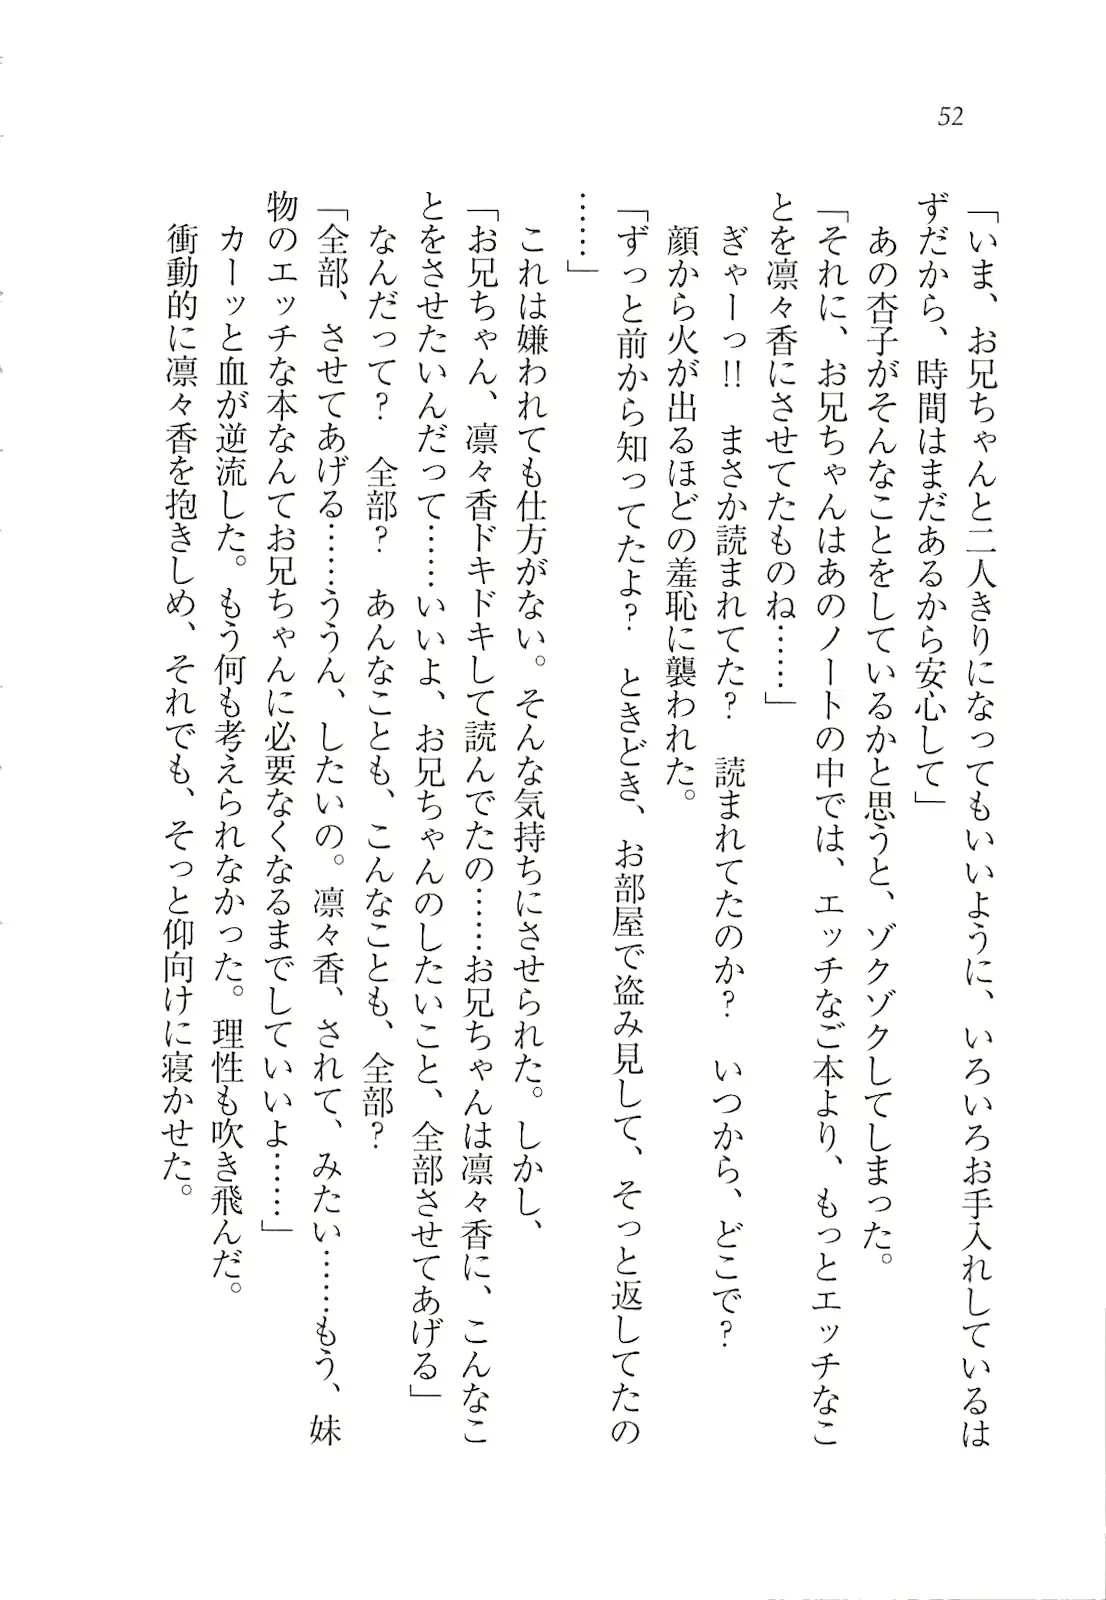 52
「いま、お兄ちゃんと二人きりになってもいいように、いろいろお手入れしているは
ずだから、時間はまだあるから安心して」
あの杏子がそんなことをしているかと思うと、ゾクゾクしてしまった。
「それに、お兄ちゃんはあのノートの中では、エッチなご本より、もっとエッチなこ
とを凛々香にさせてたものね……」
ぎゃーっ!!　まさか読まれてた?　読まれてたのか?　いつから、どこで?
顔から火が出るほどの羞恥に襲われた。
「ずっと前から知ってたよ?　ときどき、お部屋で盗み見して、そっと返してたの
……」
これは嫌われても仕方がない。そんな気持ちにさせられた。しかし、
「お兄ちゃん、凛々香ドキドキして読んでたの……お兄ちゃんは凛々香に、こんなこ
とをさせたいんだって……いいよ、お兄ちゃんのしたいこと、全部させてあげる」
なんだって?　全部?　あんなことも、こんなことも、全部?
「全部、させてあげる……ううん、したいの。凛々香、されて、みたい……もう、妹
物のエッチな本なんてお兄ちゃんに必要なくなるまでしていいよ……」
カーッと血が逆流した。もう何も考えられなかった。理性も吹き飛んだ。
衝動的に凛々香を抱きしめ、それでも、そっと仰向けに寝かせた。